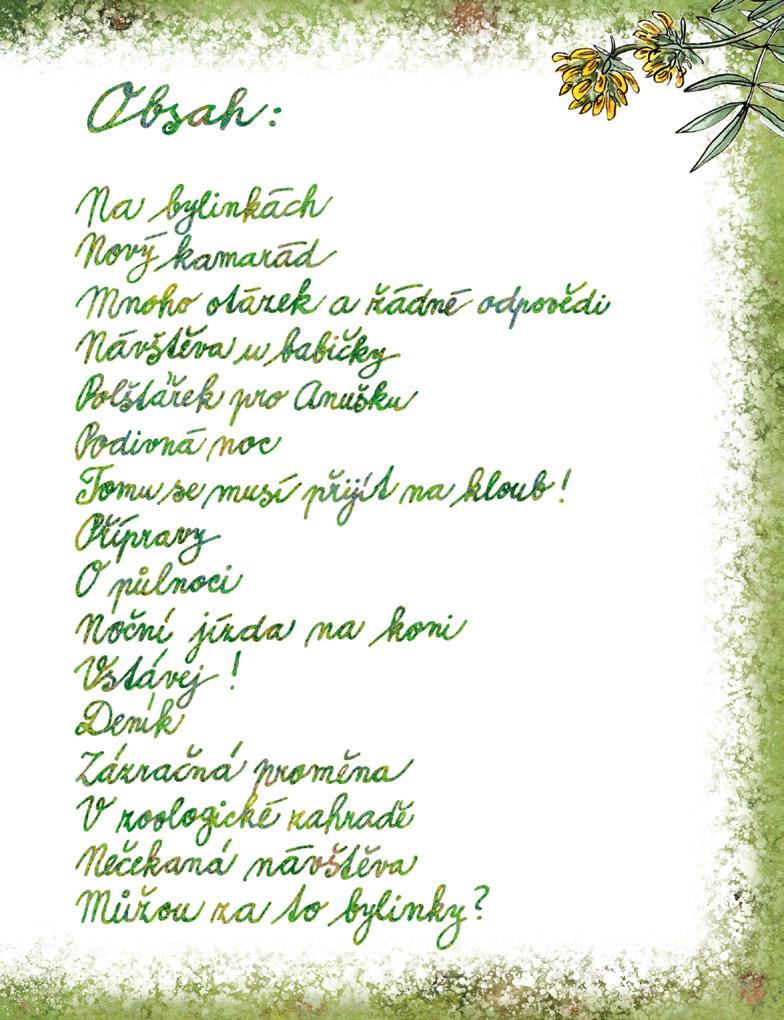 Obsah:
Na bylinkách
Nový kamarád
Mnoho otázek a žádné odpovědi
Návštěva u babičky
Polštářek pro Anušku
Podivná noc
Tomu se musí přijít na kloub!
Přípravy
O půlnoci
Noční jízda na koni
Vstávej!
Deník
Zázračná proměna
V zoologické zahradě
Nečekaná návštěva
Můžou za to bylinky?